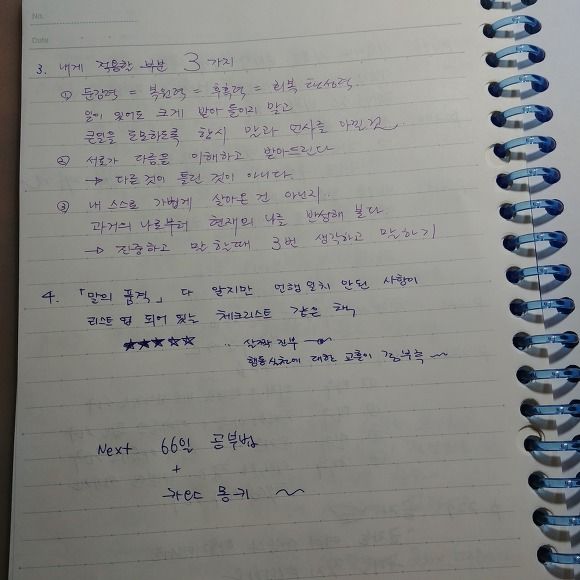 No.
Date
3. 내게 적용할 부분 3 가지
① 둔감력 = 복원력 = 후흑력 = 회복 탄성력
일이 있어도 크게 받아 들이지 말고
큰일을 도모하도록 항시 말과 언사를 아낄것
② 서로가 다름을 이해하고 받아드린다
→ 다른것이 틀린 것이 아니다
③ 내 스스로 가볍게 살아온 건 아닌지
과거의 나로부터 현재의 나를 반성해 본다
→ 진중하고 말 할때 3번 생각하고 말하기
4. 「말의 품격」 다 알지만 언행일치 안된 사항이
리스트 업 되어 있는 체크리스트 같은 책
★★★☆☆ ∵ 살짝 진부
행동실천에 대한 고찰이 부족 ~
Next 66일 공부법
+
몽키 ~